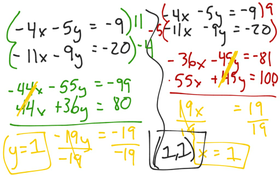 (-4x - 5y = -9) 11
(-11x - 9y = -20) -4
-44x - 55y = -99
44x + 36y = 80
-19y = -19
-19 -19
y = 1
(-4x - 5y = -9) 9
-5(-11x - 9y = -20)
-36x - 45y = -81
55x + 45y = 100
19x = 19
19 19
(1,1) x = 1